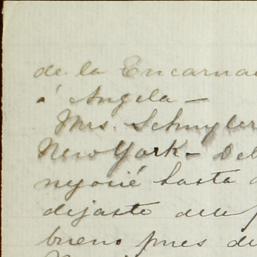 de la Encarna
á Angela —
Mrs. Schuyler
New York — Del
hasta
dejaste
bueno pues de